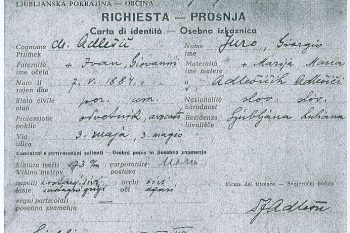 LJUBLJANSKA POKRAJINA — OBČINA
RICHIESTA — PROŠNJA
Carta di identità — Osebna izkaznica
Cognome dr. Adlešič Nome Juro, Giorgio
Priimek ime
Paternità + Ivan Giovanni Maternità + Marija Maria
ime očeta ime matere
Nato il 7. V. 1884. a Adlešičih Adlešiči
rojen dne v
Stato civile por. Nazionalità slov. slov.
stan narodnost
Professione odvetnik avocato Residenza Ljubljana Lubiana
poklic bivališče
Via 3. maja, 3. maggio
ulica
Connotati e contrassegni salienti — Osebni popis in posebna znamenja
Statura metri corporatura
Višina metrov postava
capelli occhi sivi
lasje oči
segni particolari
posebna znamenja
Firma del titolare — Svojeročni podpis
Adlešič